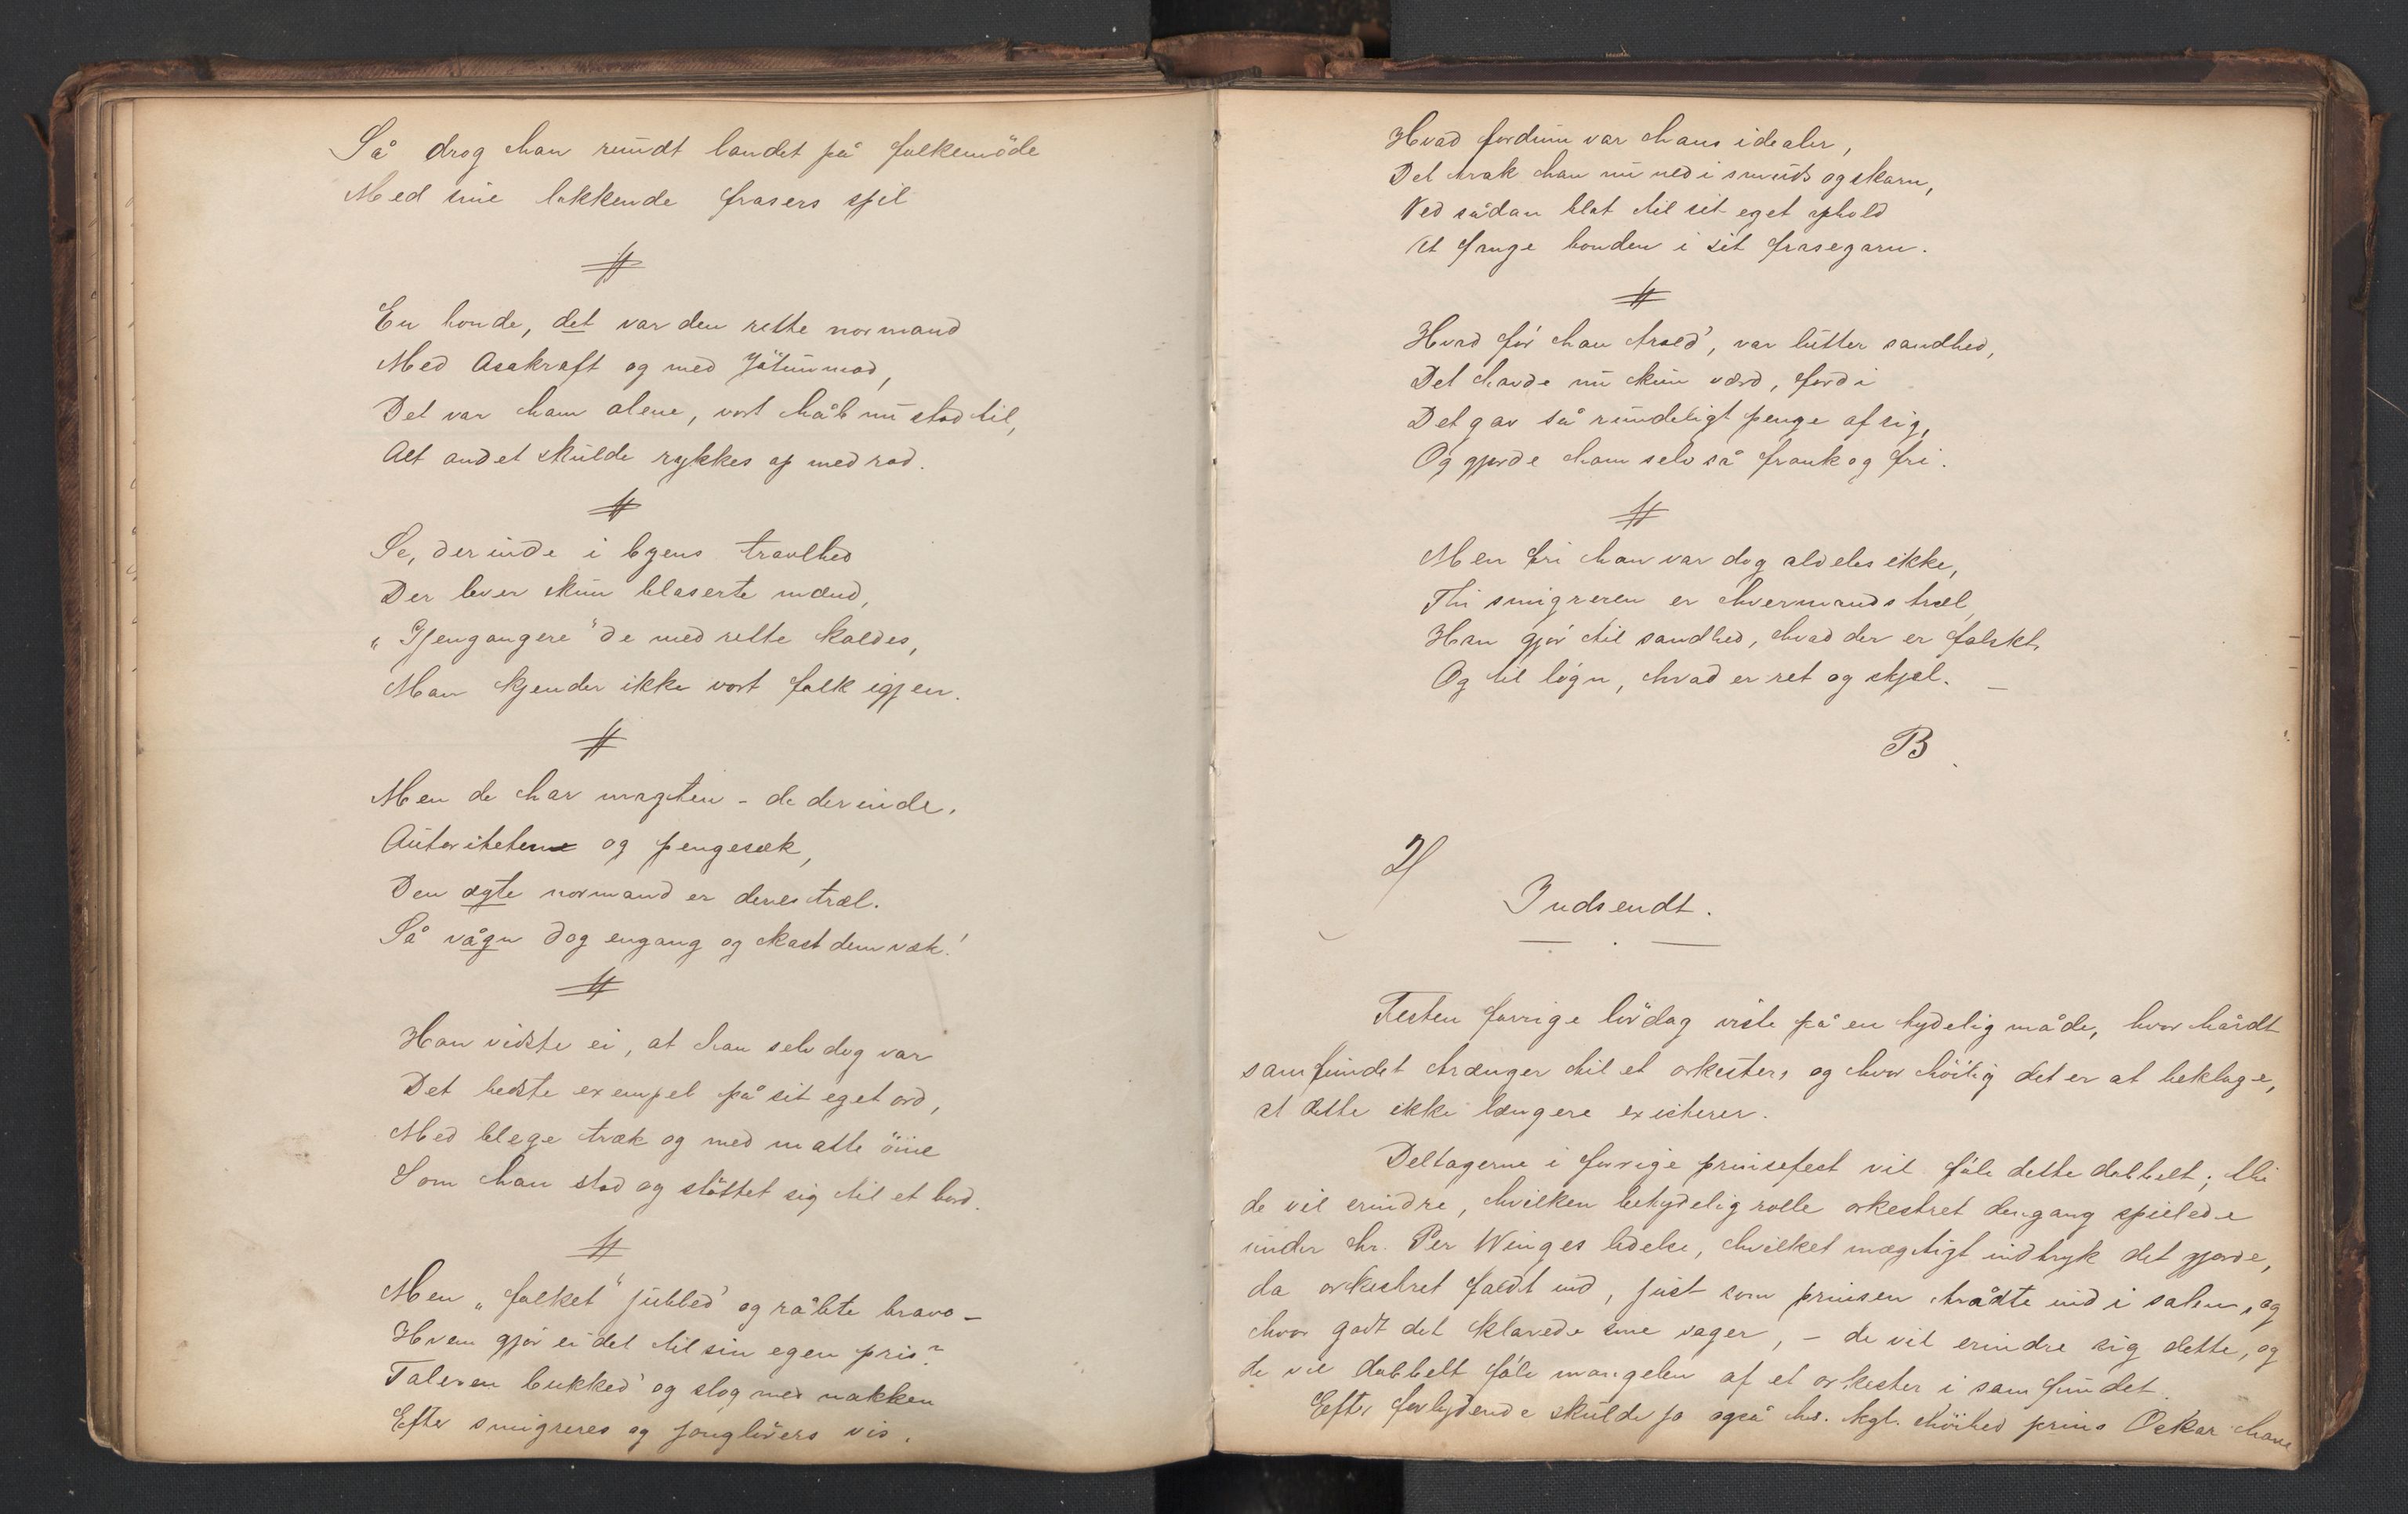 Så drog han rundt landet på folkemöde
Med sine lokkende frasers spil
En bonde, det var den rette normand
Med Asakraft og med Jötunmod,
Det var ham alene, vort håb nu stod til,
Alt andet skulde rykkes op med rod.
Se, derinde i byens travlhed
Der lever kun blaserte mænd,
"Gjengangere" de med rette kaldes,
Man kjender ikke vort folk igjen.
Men de har magten - de derinde,
Autoriteten og pengesæk,
Den ægte normand er deres træl.
Så vågn dog engang og kast dem væk!
Han vidste ei, at han selv dog var
Det bedste exempel på sit eget ord,
Med blege træk og med matte öine
Som han stod og stöttet sig til et bord.
Men "folket" jubled' og råbte bravo -
Hvem gjör ei det til sin egen pris?
Taleren bukked' og slog med nakken
Efter smigreres og jonglörers vis.
Hvad fordum var hans idealer,
Det trak han nu ned i smuds og skarn,
Ved sådan blot til sit eget ophold
At fange bonden i sit frasegarn.
Hvad för han troed', var lutter sandhed,
Det havde nu kun værd, fordi
Det gav så rundeligt penge af sig,
Og gjorde ham selv så frank og fri.
Men fri han var dog aldeles ikke,
Thi smigreren er hvermands træl,
Han gjör til sandhed, hvad der er falskt,
Og til lögn, hvad er ret og skjel. -
B.
2/
Indsendt.
Festen forrige lördag viste på en tydelig måde, hvor hårdt
samfundet trænger til et orkester, og hvor höilig det er at beklage,
at dette ikke længere existerer.
Deltagerne i forrige prinsefest vil föle dette dobbelt; thi
de vil erindre, hvilken betydelig rolle orkestret dengang spillede
under hr. Per Winges ledelse, hvilket mægtigt indtryk det gjorde,
da orkestret faldt ind, just som prinsen trådte ind i salen, og
hvor godt det klarede sine sager, - de vil erindre sig dette, og
de vil dobbelt föle mangelen af et orkester i samfundet.
Efter forlydende skulde jo også hs. kgl. höihed prins Oskar have